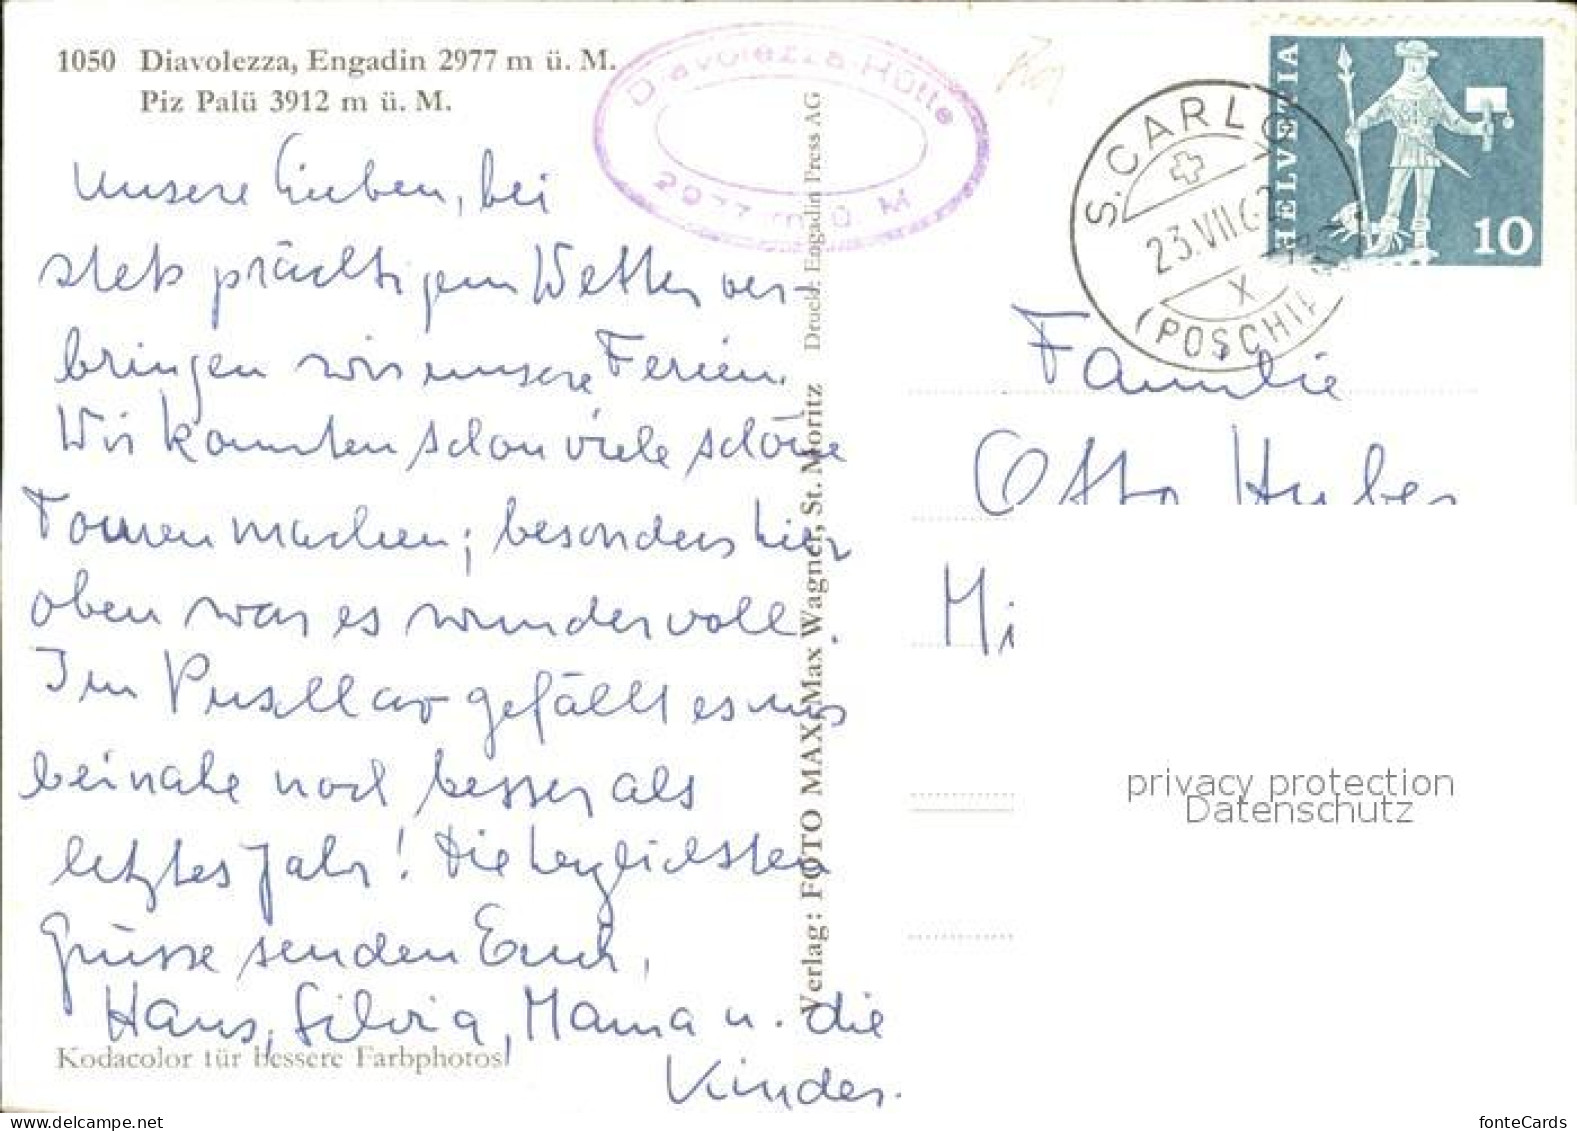 1050 Diavolezza, Engadin 2977 m ü. M.
Piz Palü 3912 m ü. M.
Diavolezza Hütte
2977 m ü M
HELVETIA
10
S. CARLO
23.VII.6
X
(POSCHI
Unsere Lieben, bei
stets prächtigem Wetter ver-
bringen wir unsere Ferien.
Wir konnten schon viele schöne
Touren machen; besonders hier
oben war es wundervoll.
Im Pusllav gefällt es uns
beinahe noch besser als
letztes Jahr! Die herzlichsten
Grüsse senden Euch,
Hans, Silvia, Mama u. die
Kinder.
Kodacolor für bessere Farbphotos
Verlag: FOTO MAX, Max Wagner, St. Moritz Druck: Engadin Press AG
Familie
Otto Huber
Mi
privacy protection
Datenschutz
www.delcampe.net
fonteCards